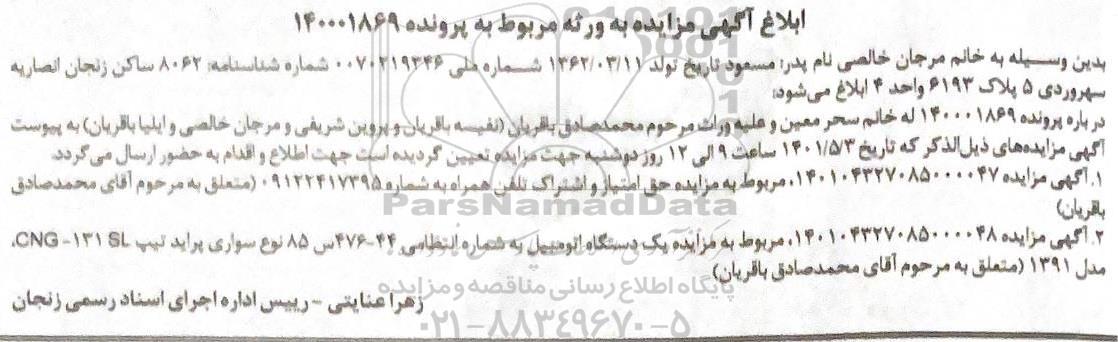 ابلاغ آگهی مزایده به ورثه مربوط به پرونده ۱۴۰۰۰۱۸۶۹
بدین وسیله به خانم مرجان خالصی نام پدر: مسعود تاریخ تولد ۱۳۶۲/۰۳/۱۱ شماره ملی ۰۰۷۰۲۱۹۳۴۶ شماره شناسنامه: ۸۰۶۲ ساکن زنجان انصاریه
سهروردی ۵ پلاک ۶۱۹۳ واحد ۴ ابلاغ می‌شود:
در باره پرونده ۱۴۰۰۰۱۸۶۹ له خانم سحر معین و علیه وراث مرحوم محمدصادق باقریان (نفیسه باقریان و پروین شریفی و مرجان خالصی و ایلیا باقریان) به پیوست
آگهی مزایده‌های ذیل‌الذکر که تاریخ ۱۴۰۱/۵/۳ ساعت ۹ الی ۱۲ روز دوشنبه جهت مزایده تعیین گردیده است جهت اطلاع و اقدام به حضور ارسال می‌گردد.
۱. آگهی مزایده ۱۴۰۱۰۴۳۲۷۰۸۵۰۰۰۰۴۷، مربوط به مزایده حق امتیاز و اشتراک تلفن همراه به شماره ۰۹۱۲۲۴۱۷۳۹۵ (متعلق به مرحوم آقای محمدصادق
باقریان)
۲. آگهی مزایده ۱۴۰۱۰۴۳۲۷۰۸۵۰۰۰۰۴۸، مربوط به مزایده یک دستگاه اتومبیل به شماره انتظامی ۴۴-۴۷۶س ۸۵ نوع سواری پراید تیپ CNG -۱۳۱ SL،
مدل ۱۳۹۱ (متعلق به مرحوم آقای محمدصادق باقریان)
زهرا عنایتی - رییس اداره اجرای اسناد رسمی زنجان
ParsNamadData
پایگاه اطلاع رسانی مناقصه و مزایده
۰۲۱-۸۸۳۴۹۶۷۰-۵